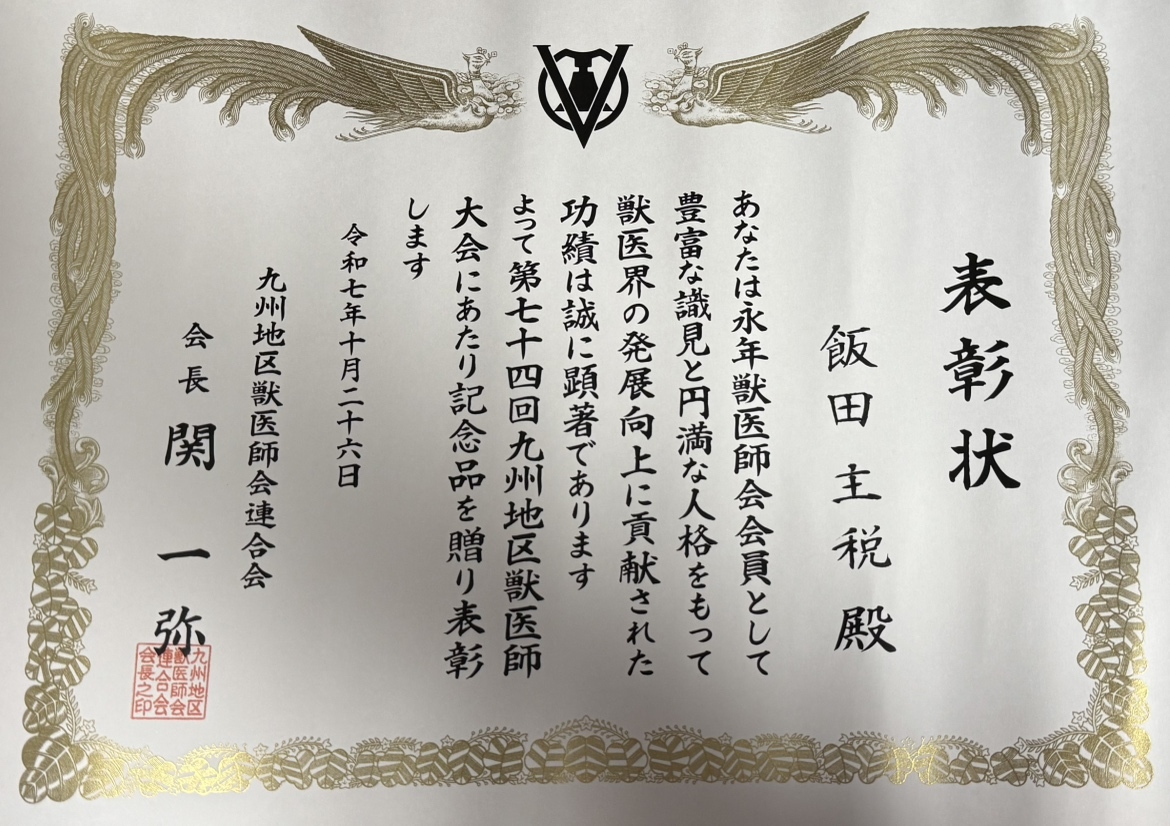 表彰状
飯田主税殿
あなたは永年獣医師会会員として
豊富な識見と円満な人格をもって
獣医界の発展向上に貢献された
功績は誠に顕著であります
よって第七十四回九州地区獣医師
大会にあたり記念品を贈り表彰
します
令和七年十月二十六日
九州地区獣医師会連合会
会長 関一弥
九州地区
獣医師会
連合会
会長之印